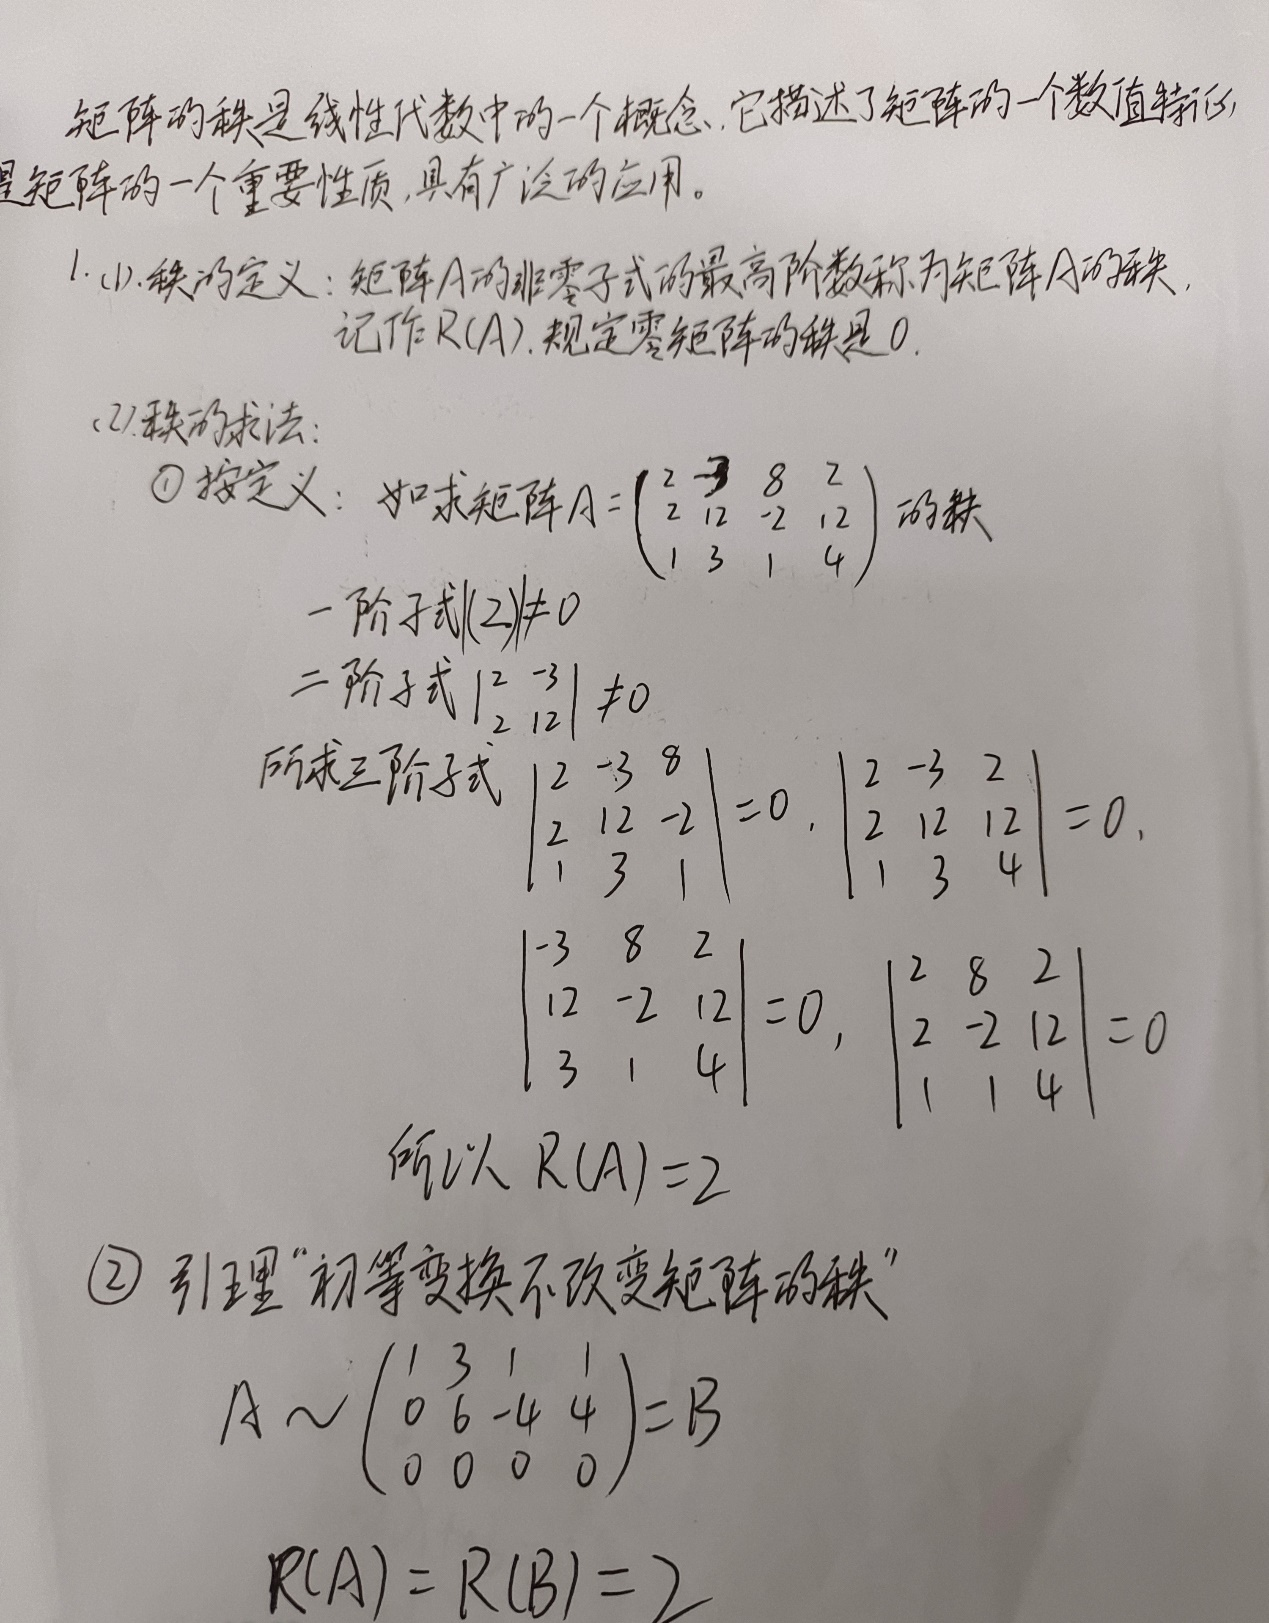 矩阵的秩是线性代数中的一个概念,它描述了矩阵的一个数值特征,
是矩阵的一个重要性质,具有广泛的应用。
1.(1).秩的定义:矩阵A的非零子式的最高阶数称为矩阵A的秩,
记作R(A).规定零矩阵的秩是0.
(2).秩的求法:
①按定义: 如求矩阵A=(2 -3 8 2
2 12 -2 12
1 3 1 4)的秩
一阶子式|(2)|≠0
二阶子式|2 -3
2 12|≠0
所求三阶子式|2 -3 8
2 12 -2
1 3 1|=0,|2 -3 2
2 12 12
1 3 4|=0,
|-3 8 2
12 -2 12
3 1 4|=0,|2 8 2
2 -2 12
1 1 4|=0
所以 R(A)=2
②引理“初等变换不改变矩阵的秩”
A~(1 3 1 1
0 6 -4 4
0 0 0 0)=B
R(A)=R(B)=2